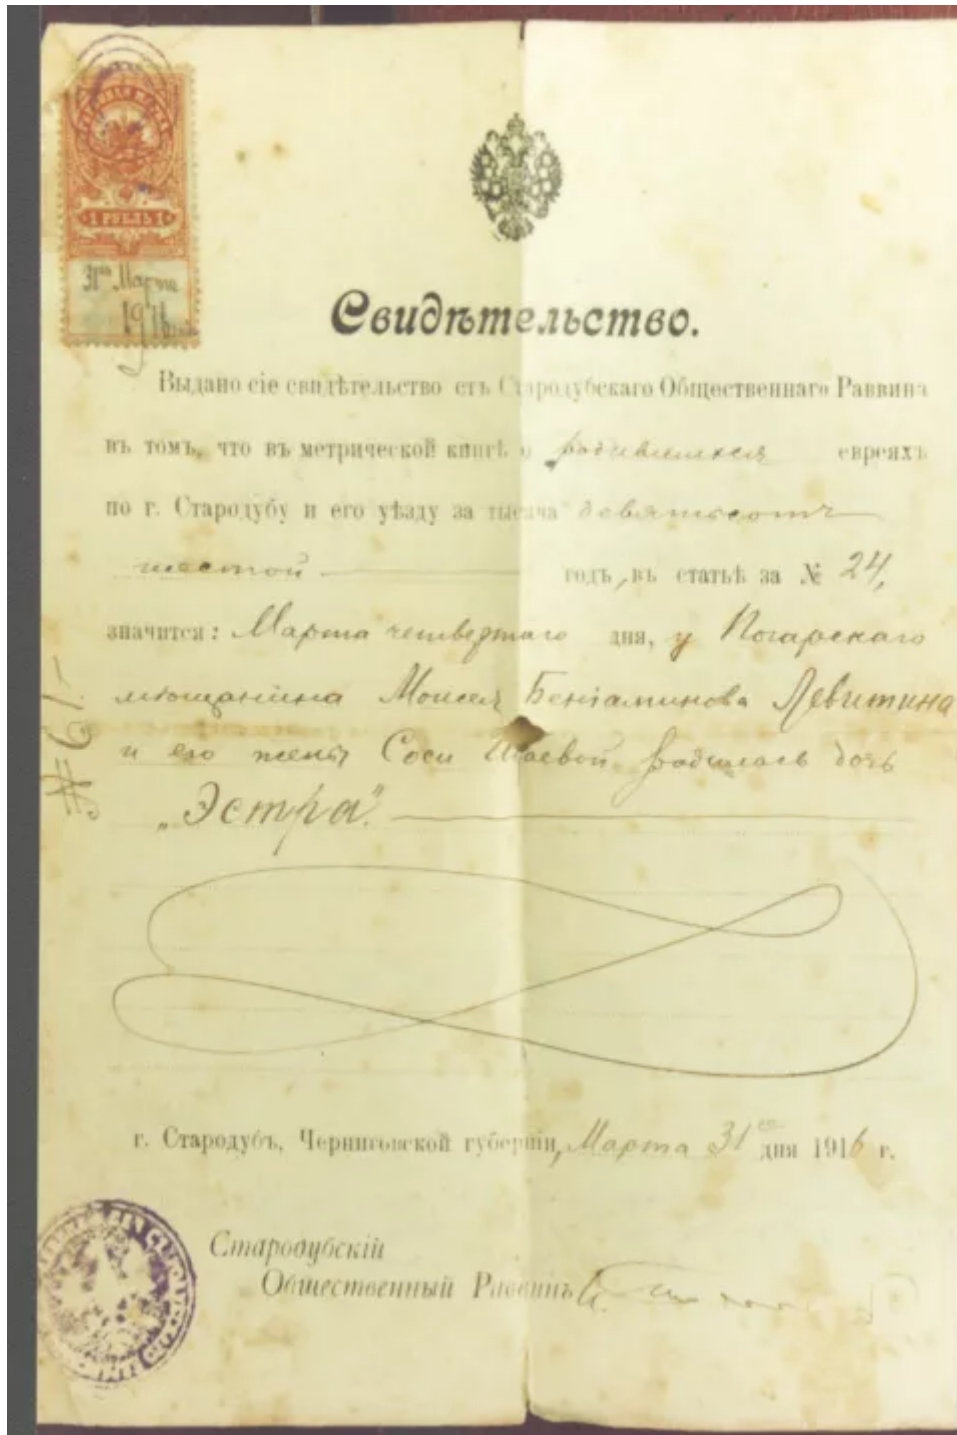 1 РУБЛЬ 1
31го Марта
1916
Свидѣтельство.
Выдано сіе свидѣтельство отъ Стародубскаго Общественнаго Раввина
въ томъ, что въ метрической книгѣ о родившихся евреяхъ
по г. Стародубу и его уѣзду за тысяча девятьсотъ
шестой годъ, въ статьѣ за № 24,
значится: Марта четвертаго дня, у Погарскаго
мѣщанина Моисея Беніаминова Левитина
и его жены Соси Исаевой родилась дочь
„Эстра".
№ 61.
г. Стародубъ, Черниговской губерніи, Марта 31 дня 1916 г.
Стародубскій
Общественный Раввинъ